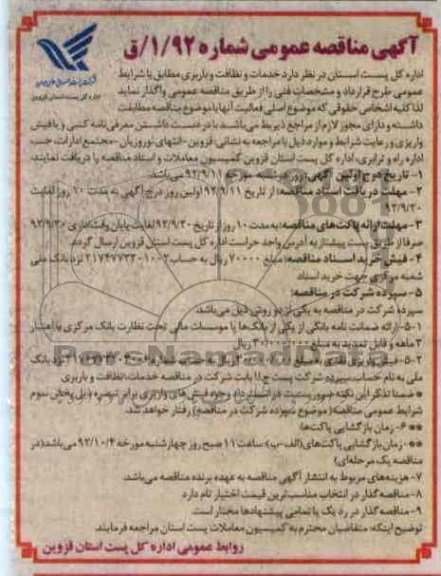 آگهی مناقصه عمومی شماره ۱/۹۲/ق
اداره کل پست استان قزوین
اداره کل پست استان در نظر دارد خدمات و نظافت و باربری مطابق با شرایط
عمومی طرح قرارداد و مشخصات فنی را از طریق مناقصه عمومی واگذار نماید
لذا کلیه اشخاص حقوقی که موضوع اصلی فعالیت آنها با موضوع مناقصه مطابقت
داشته و دارای مجوز لازم از مراجع ذیربط می‌باشند با در دست داشتن معرفی نامه کتبی و با فیش
واریزی و رعایت شرایط و موارد ذیل با مراجعه به نشانی: قزوین - انتهای نوروزیان - مجتمع ادارات، جنب
اداره راه و ترابری، اداره کل پست استان قزوین کمیسیون معاملات و اسناد مناقصه را دریافت نمایند:
۱- تاریخ درج اولین آگهی: روز دوشنبه مورخه ۹۲/۹/۱۱ می‌باشد.
۲- مهلت دریافت اسناد مناقصه: از تاریخ ۹۲/۹/۱۱ اولین روز درج آگهی به مدت ۱۰ روز لغایت
۹۲/۹/۲۰
۳- مهلت ارائه پاکت‌های مناقصه: به مدت ۱۰ روز از تاریخ ۹۲/۹/۲۰ لغایت پایان وقت اداری ۹۲/۹/۳۰
صرفا از طریق پست پیشتاز به آدرس واحد حراست اداره کل پست استان قزوین ارسال گردد.
۴- فیش خرید اسناد مناقصه: مبلغ ۷۰۰۰۰ ریال به حساب ۲۱۷۴۷۷۳۲۰۱۰۰۲ نزد بانک ملی
شعبه مرکزی جهت خرید اسناد
۵- سپرده شرکت در مناقصه:
سپرده شرکت در مناقصه به یکی از دو روش ذیل می‌باشد:
۵-۱- ارائه ضمانت نامه بانکی از یکی از بانک‌ها یا موسسات مالی تحت نظارت بانک مرکزی با اعتبار
۳ ماهه و قابل تمدید به مبلغ ریال
۵-۲- فیش واریزی نقدی به مبلغ نزد بانک
ملی به نام حساب سپرده شرکت پست ج.ا.ا بابت شرکت در مناقصه خدمات، نظافت و باربری
* ضمنا تذکر این نکته ضروریست وجوه فیش‌های واریزی برابر تبصره ذیل بخش سوم
شرایط عمومی مناقصه (موضوع سپرده شرکت در مناقصه) رفتار خواهد شد.
۶- زمان بازگشایی پاکت‌ها:
* زمان بازگشایی پاکت‌های (الف-ب): ساعت ۱۱ صبح روز چهارشنبه مورخه ۹۲/۱۰/۴ می‌باشد (در
مناقصه یک مرحله‌ای)
۷- هزینه‌های مربوط به انتشار آگهی مناقصه به عهده برنده مناقصه می‌باشد.
۸- مناقصه گذار در انتخاب مناسب‌ترین قیمت اختیار تام دارد
۹- مناقصه گذار در رد یک یا تمامی پیشنهادها مختار است.
توضیح اینکه: متقاضیان محترم به کمیسیون معاملات پست استان مراجعه فرمایند.
روابط عمومی اداره کل پست استان قزوین